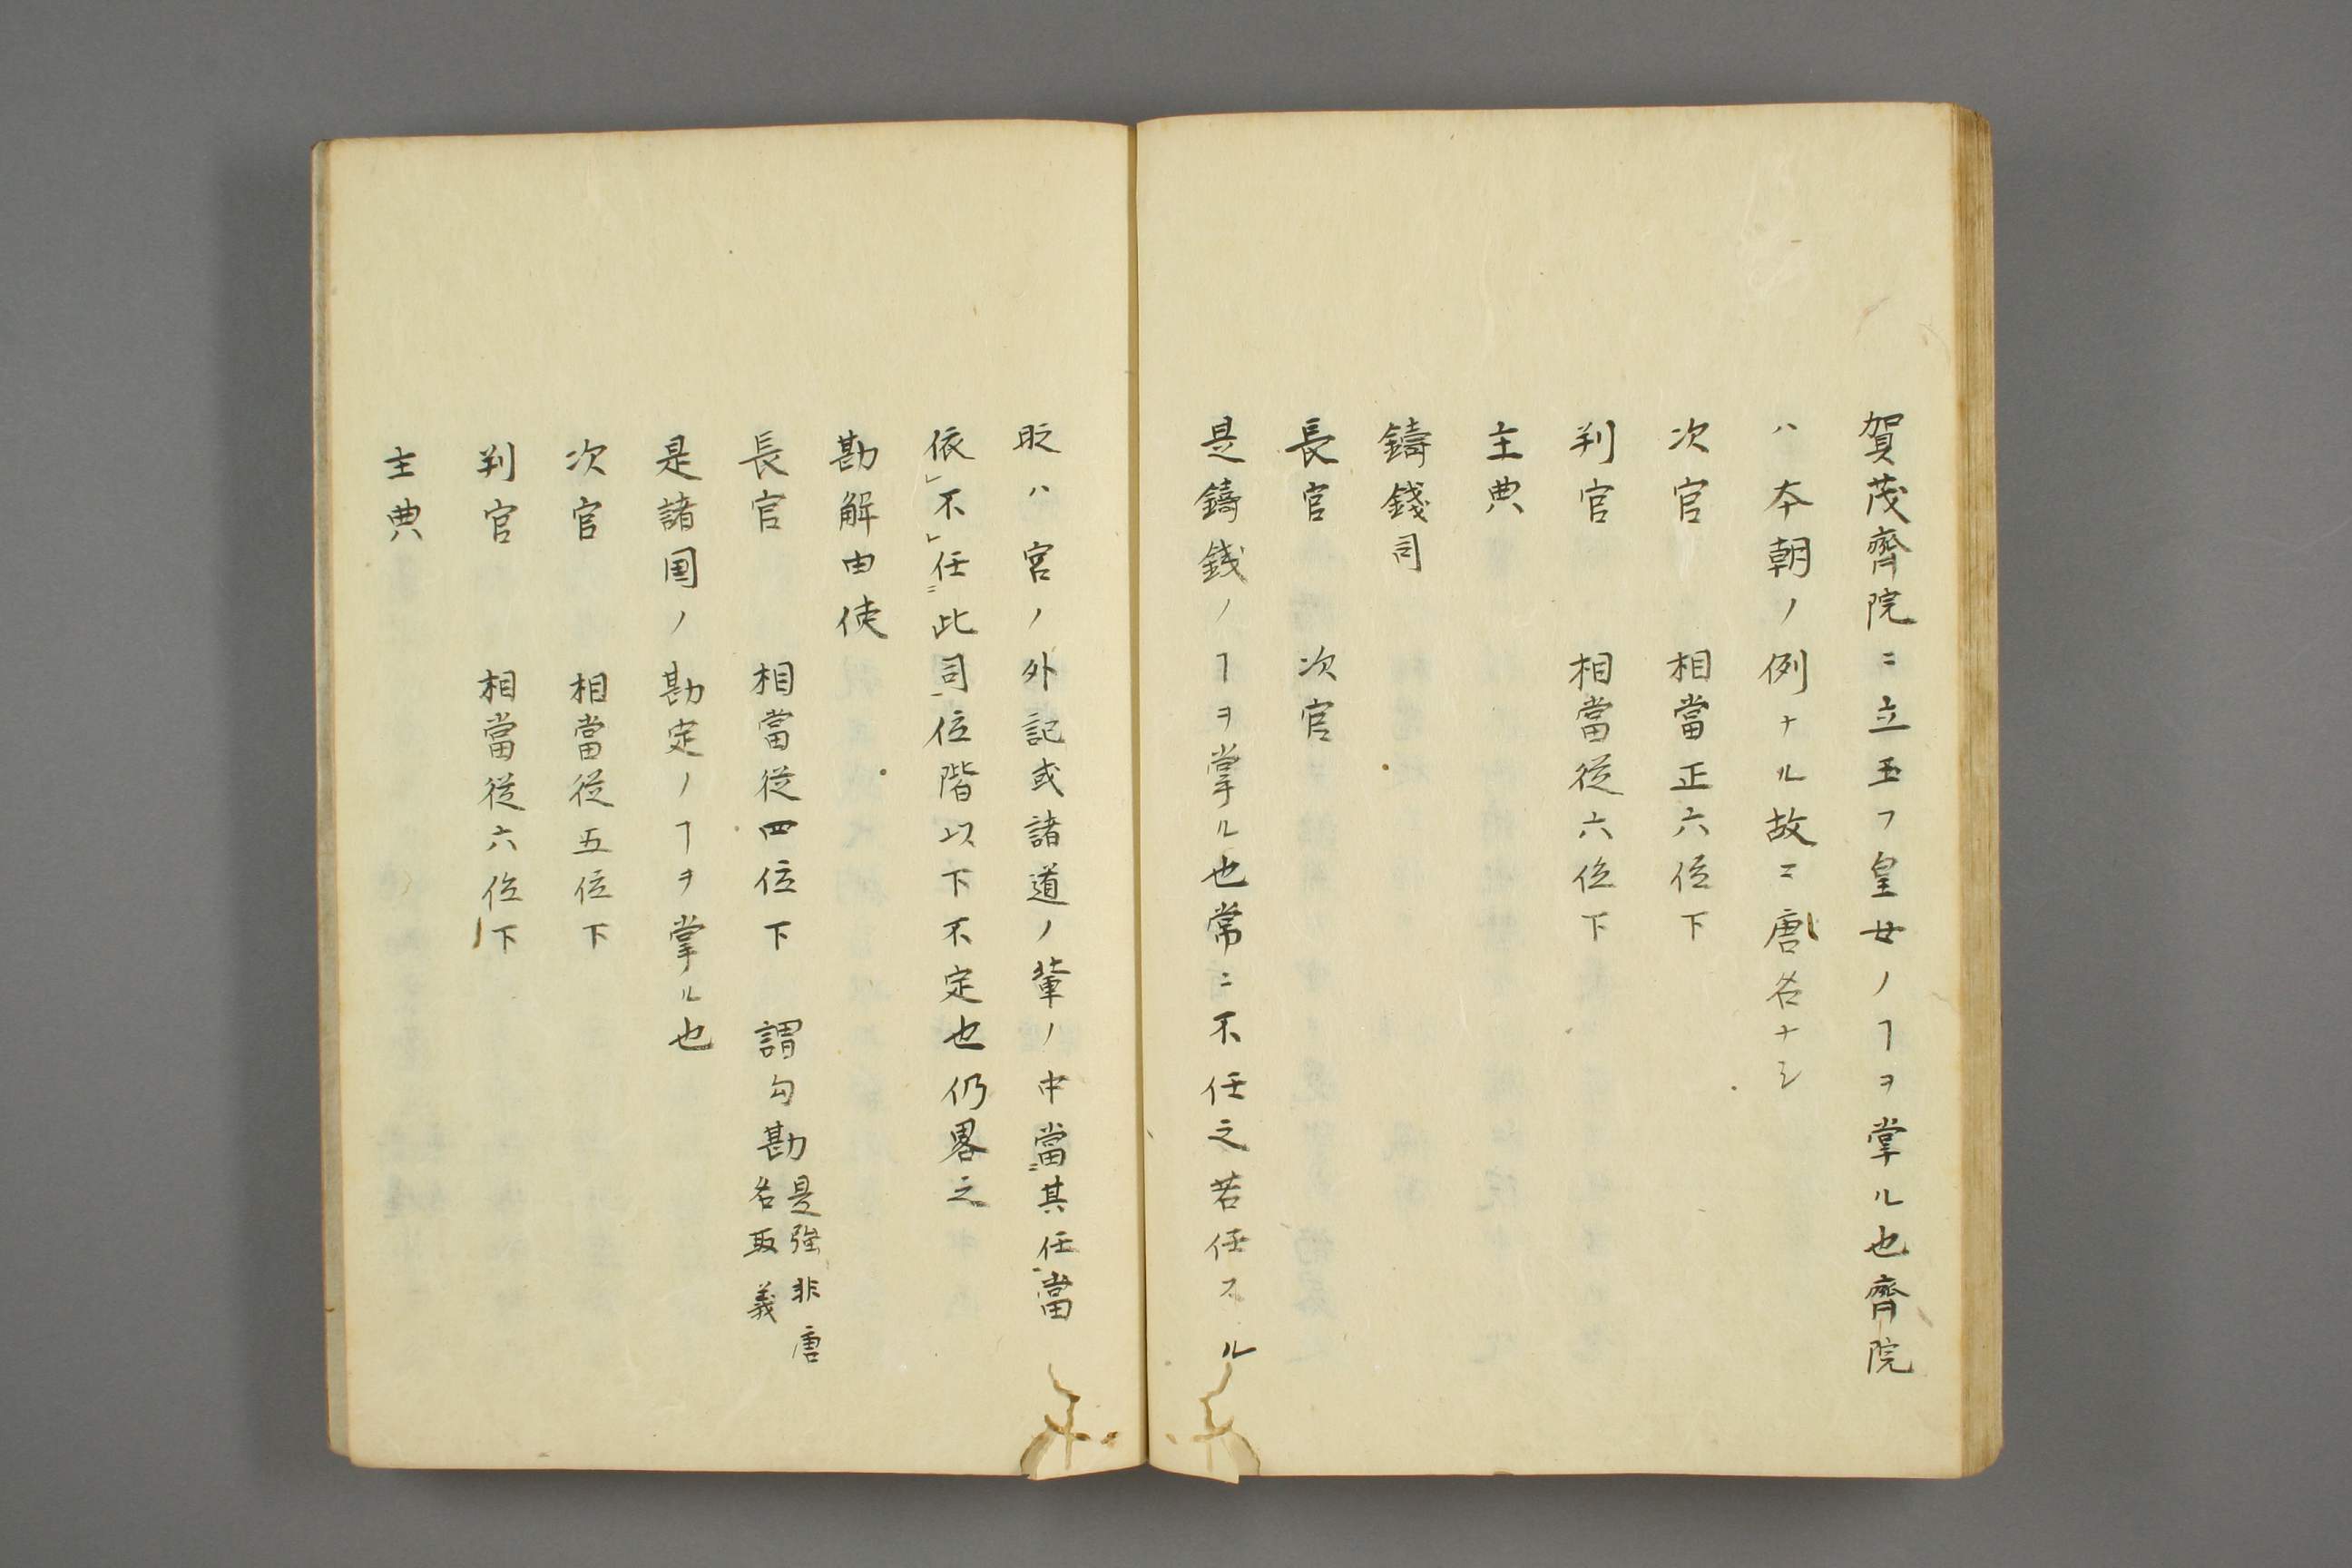 賀茂齊院ニ立玉フ皇女ノヿヲ掌ル也齊院
ハ本朝ノ例ナル故ニ唐名ナシ
次官　相當正六位下
判官　相當従六位下
主典
鑄錢司
長官　次官
是鑄銭ノヿヲ掌ル也常ニ不任之若任スル
旷ハ宮ノ外記或諸道ノ輩ノ中當其任當
依レ不レ任二此司一位階以下不定也仍畧之
勘解由使
長官　相當従四位下　謂勾勘是強非唐
名取義
是諸国ノ勘定ノヿヲ掌ル也
次官　相當従五位下
判官　相當従六位下
主典